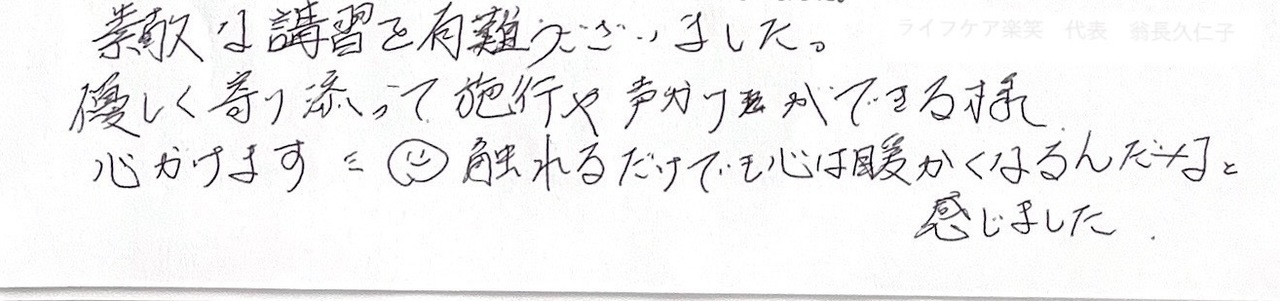 素敵な講習を有難うございました。
ライフケア楽笑　代表　翁長久仁子
優しく寄り添って施行や声かけができる様
心かけます
触れるだけでも心は暖かくなるんだなと
感じました.